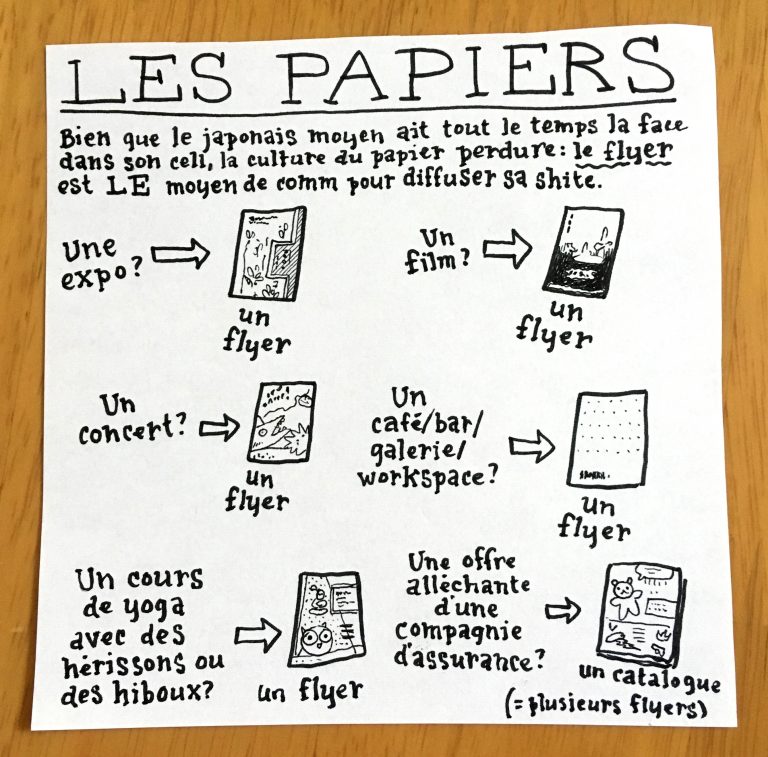 LES PAPIERS
Bien que le japonais moyen ait tout le temps la face
dans son cell, la culture du papier perdure: le flyer
est LE moyen de comm pour diffuser sa shite.
Une
expo?
un
flyer
Un
film?
un
flyer
Un
concert?
un
flyer
Un
café/bar/
galerie/
workspace?
un
flyer
Un cours
de yoga
avec des
hérissons ou
des hiboux?
un flyer
Une offre
alléchante
d'une
compagnie
d'assurance?
un catalogue
(=plusieurs flyers)